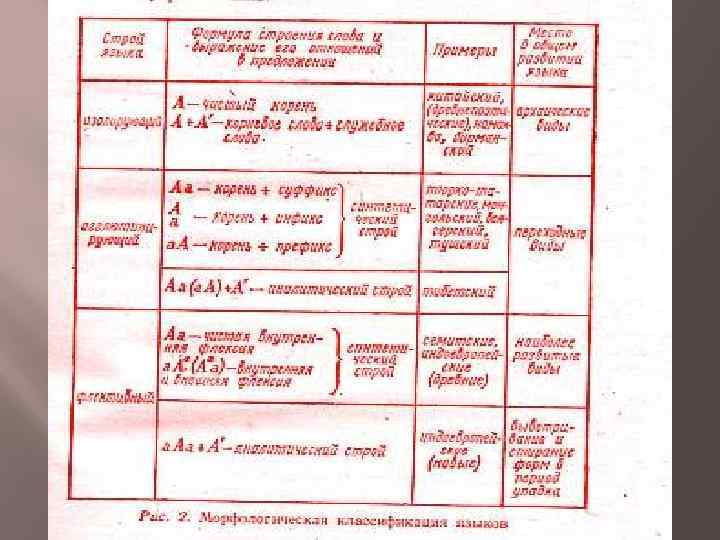 Строй языка
Формула строения слова и
выражение его отношений
в предложении
Примеры
Место
в общем
развитии
языка
изолирующий
А — чистый корень
А + А' — корневое слово + служебное
слово.
китайский,
(древнетибет-
ческие), намак-
ва, бирман-
ской
архаические
виды
агглютини-
рующий
Аа — корень + суффикс
А
а — корень + инфикс
аА — корень + префикс
синтети-
ческий
строй
тюрко-та-
тарские, мон-
гольский, вен-
герский,
тушский
переходные
виды
Аа (аА) + А' — аналитический строй
тибетский
флективный
Аа — чистая внутрен-
няя флексия
и внешняя флексия
синтети-
ческий
строй
семитские,
индоевропей-
ские
(древние)
наиболее
развитые
виды
аАа + А' — аналитический строй
индоевропей-
ские
(новые)
выветри-
вание и
стирание
форм в
период
упадка
Рис. 2. Морфологическая классификация языков